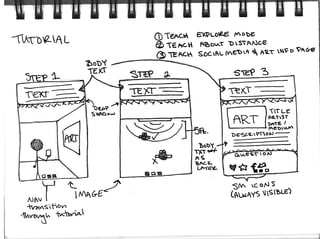 TUTORIAL
① TEACH EXPLORE MODE
② TEACH ABOUT DISTANCE
③ TEACH SOCIAL MEDIA & ART INFO PAGE
BODY
TEXT
STEP 1
TEXT
DROP
SHADOW
ART
NAV
transition
through tutorial
IMAGE
STEP 2
TEXT
5ft.
BODY
TXT
AS
BACK
LAYER
STEP 3
TEXT
ART
TITLE
ARTIST
DATE /
MEDIUM
DESCRIPTION
QUESTION
SM ICONS
(ALWAYS VISIBLE)